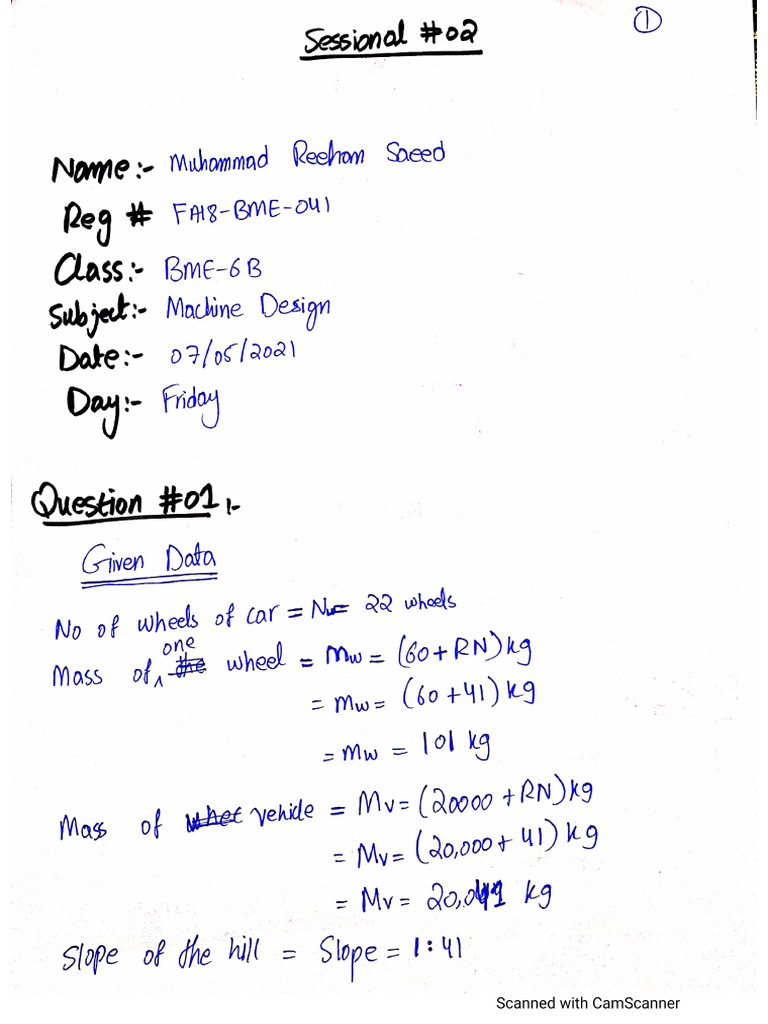 Sessional #02
1
Name:- Muhammad Reeham Saeed
Reg # FA18-BME-041
Class:- BME-6B
Subject:- Machine Design
Date:- 07/05/2021
Day:- Friday
Question #01:-
Given Data
No of wheels of car = Nw = 22 wheels
Mass of one wheel = mw = (60+RN)kg
= mw = (60+41) kg
= mw = 101 kg
Mass of vehicle = Mv = (20000 + RN)kg
= Mv = (20,000 + 41) kg
= Mv = 20,041 kg
Slope of the hill = Slope = 1:41
Scanned with CamScanner